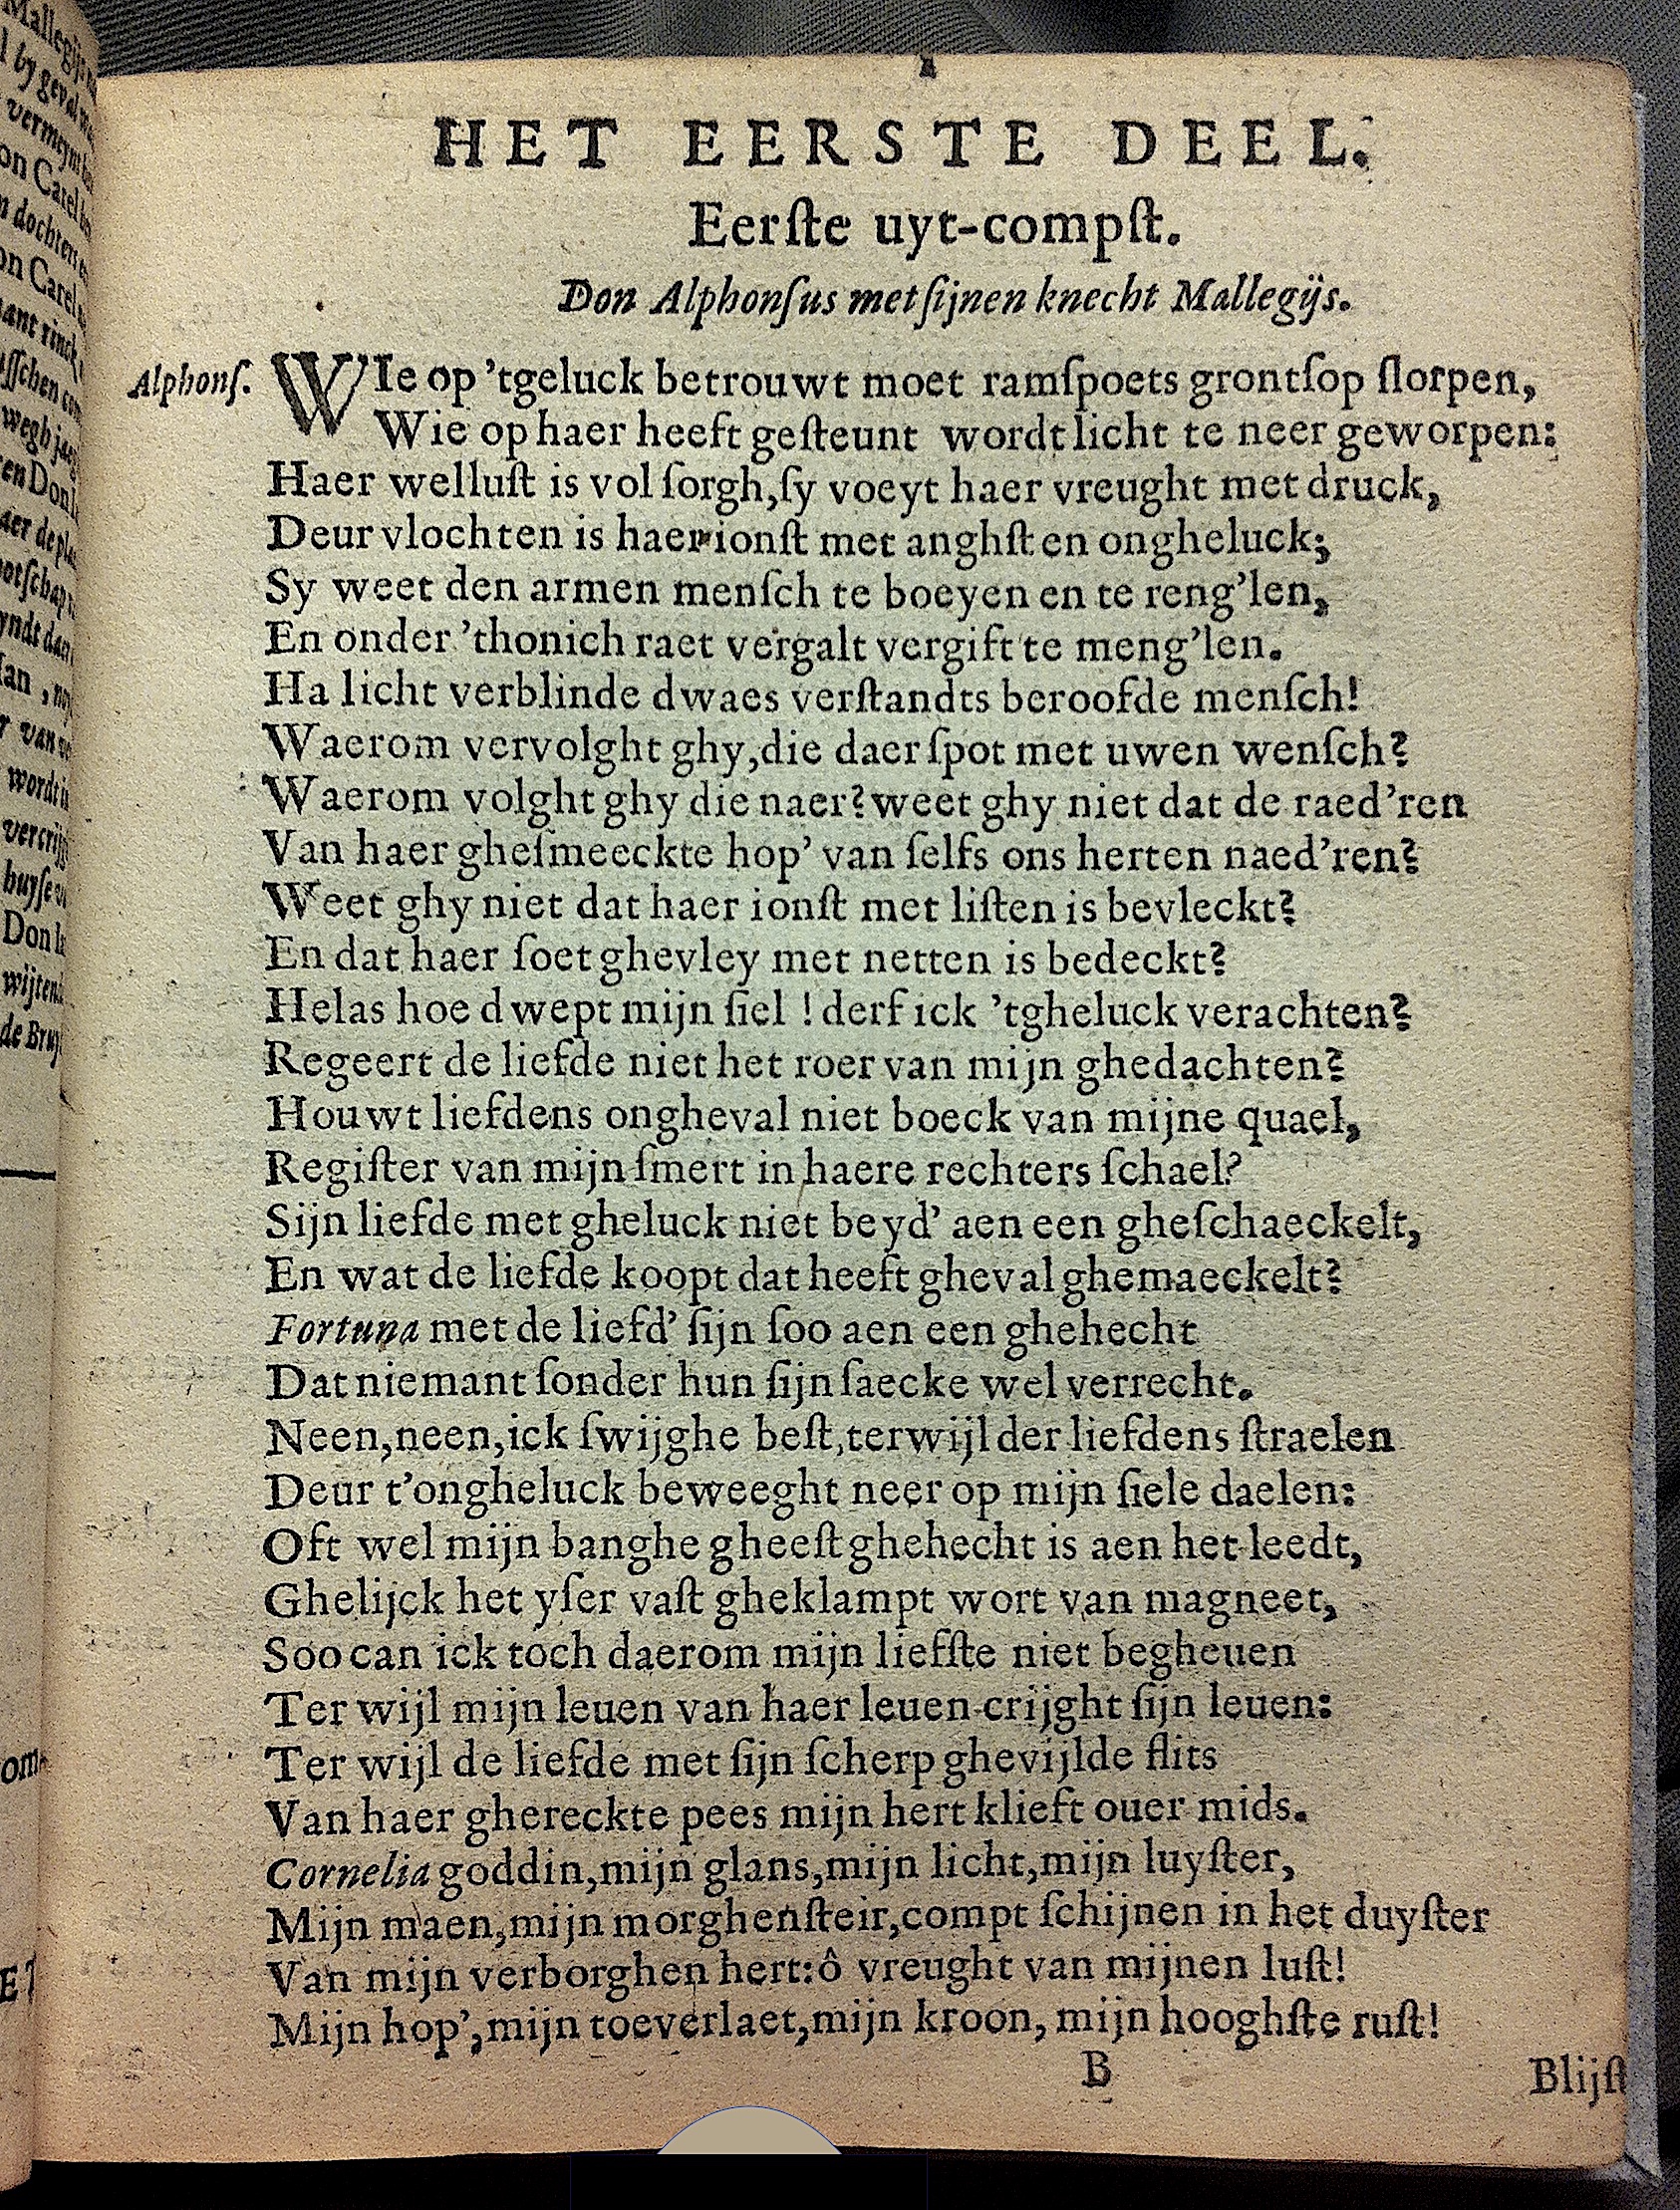 HET EERSTE DEEL.
Eerſte uyt-compſt.
Don Alphonſus met ſijnen knecht Mallegijs.
Alphonſ. WIe op 'tgeluck betrouwt moet ramſpoets grontſop ſlorpen,
Wie op haer heeft geſteunt wordt licht te neer geworpen:
Haer welluſt is vol ſorgh, ſy voeyt haer vreught met druck,
Deurvlochten is haer ionſt met anghſt en ongheluck;
Sy weet den armen menſch te boeyen en te reng'len,
En onder 'thonich raet vergalt vergift te meng'len.
Ha licht verblinde dwaes verſtandts beroofde menſch!
Waerom vervolght ghy, die daer ſpot met uwen wenſch?
Waerom volght ghy die naer? weet ghy niet dat de raed'ren
Van haer gheſmeeckte hop' van ſelfs ons herten naed'ren?
Weet ghy niet dat haer ionſt met liſten is bevleckt?
En dat haer ſoet ghevley met netten is bedeckt?
Helas hoe dwept mijn ſiel ! derf ick 'tgheluck verachten?
Regeert de liefde niet het roer van mijn ghedachten?
Houwt liefdens ongheval niet boeck van mijne quael,
Regiſter van mijn ſmert in haere rechters ſchael?
Sijn liefde met gheluck niet beyd' aen een gheſchaeckelt,
En wat de liefde koopt dat heeft gheval ghemaeckelt?
Fortuna met de liefd' ſijn ſoo aen een ghehecht
Dat niemant ſonder hun ſijn ſaecke wel verrecht.
Neen, neen, ick ſwijghe beſt, terwijl der liefdens ſtraelen
Deur t'ongheluck beweeght neer op mijn ſiele daelen:
Oft wel mijn banghe gheeſt ghehecht is aen het leedt,
Ghelijck het yſer vaſt gheklampt wort van magneet,
Soo can ick toch daerom mijn liefſte niet begheuen
Ter wijl mijn leuen van haer leuen crijght ſijn leuen:
Ter wijl de liefde met ſijn ſcherp ghevijlde flits
Van haer ghereckte pees mijn hert klieft ouer mids.
Cornelia goddin, mijn glans, mijn licht, mijn luyſter,
Mijn maen, mijn morghenſteir, compt ſchijnen in het duyſter
Van mijn verborghen hert: ô vreught van mijnen luſt!
Mijn hop', mijn toeverlaet, mijn kroon, mijn hooghſte ruſt!
B
Blijſt